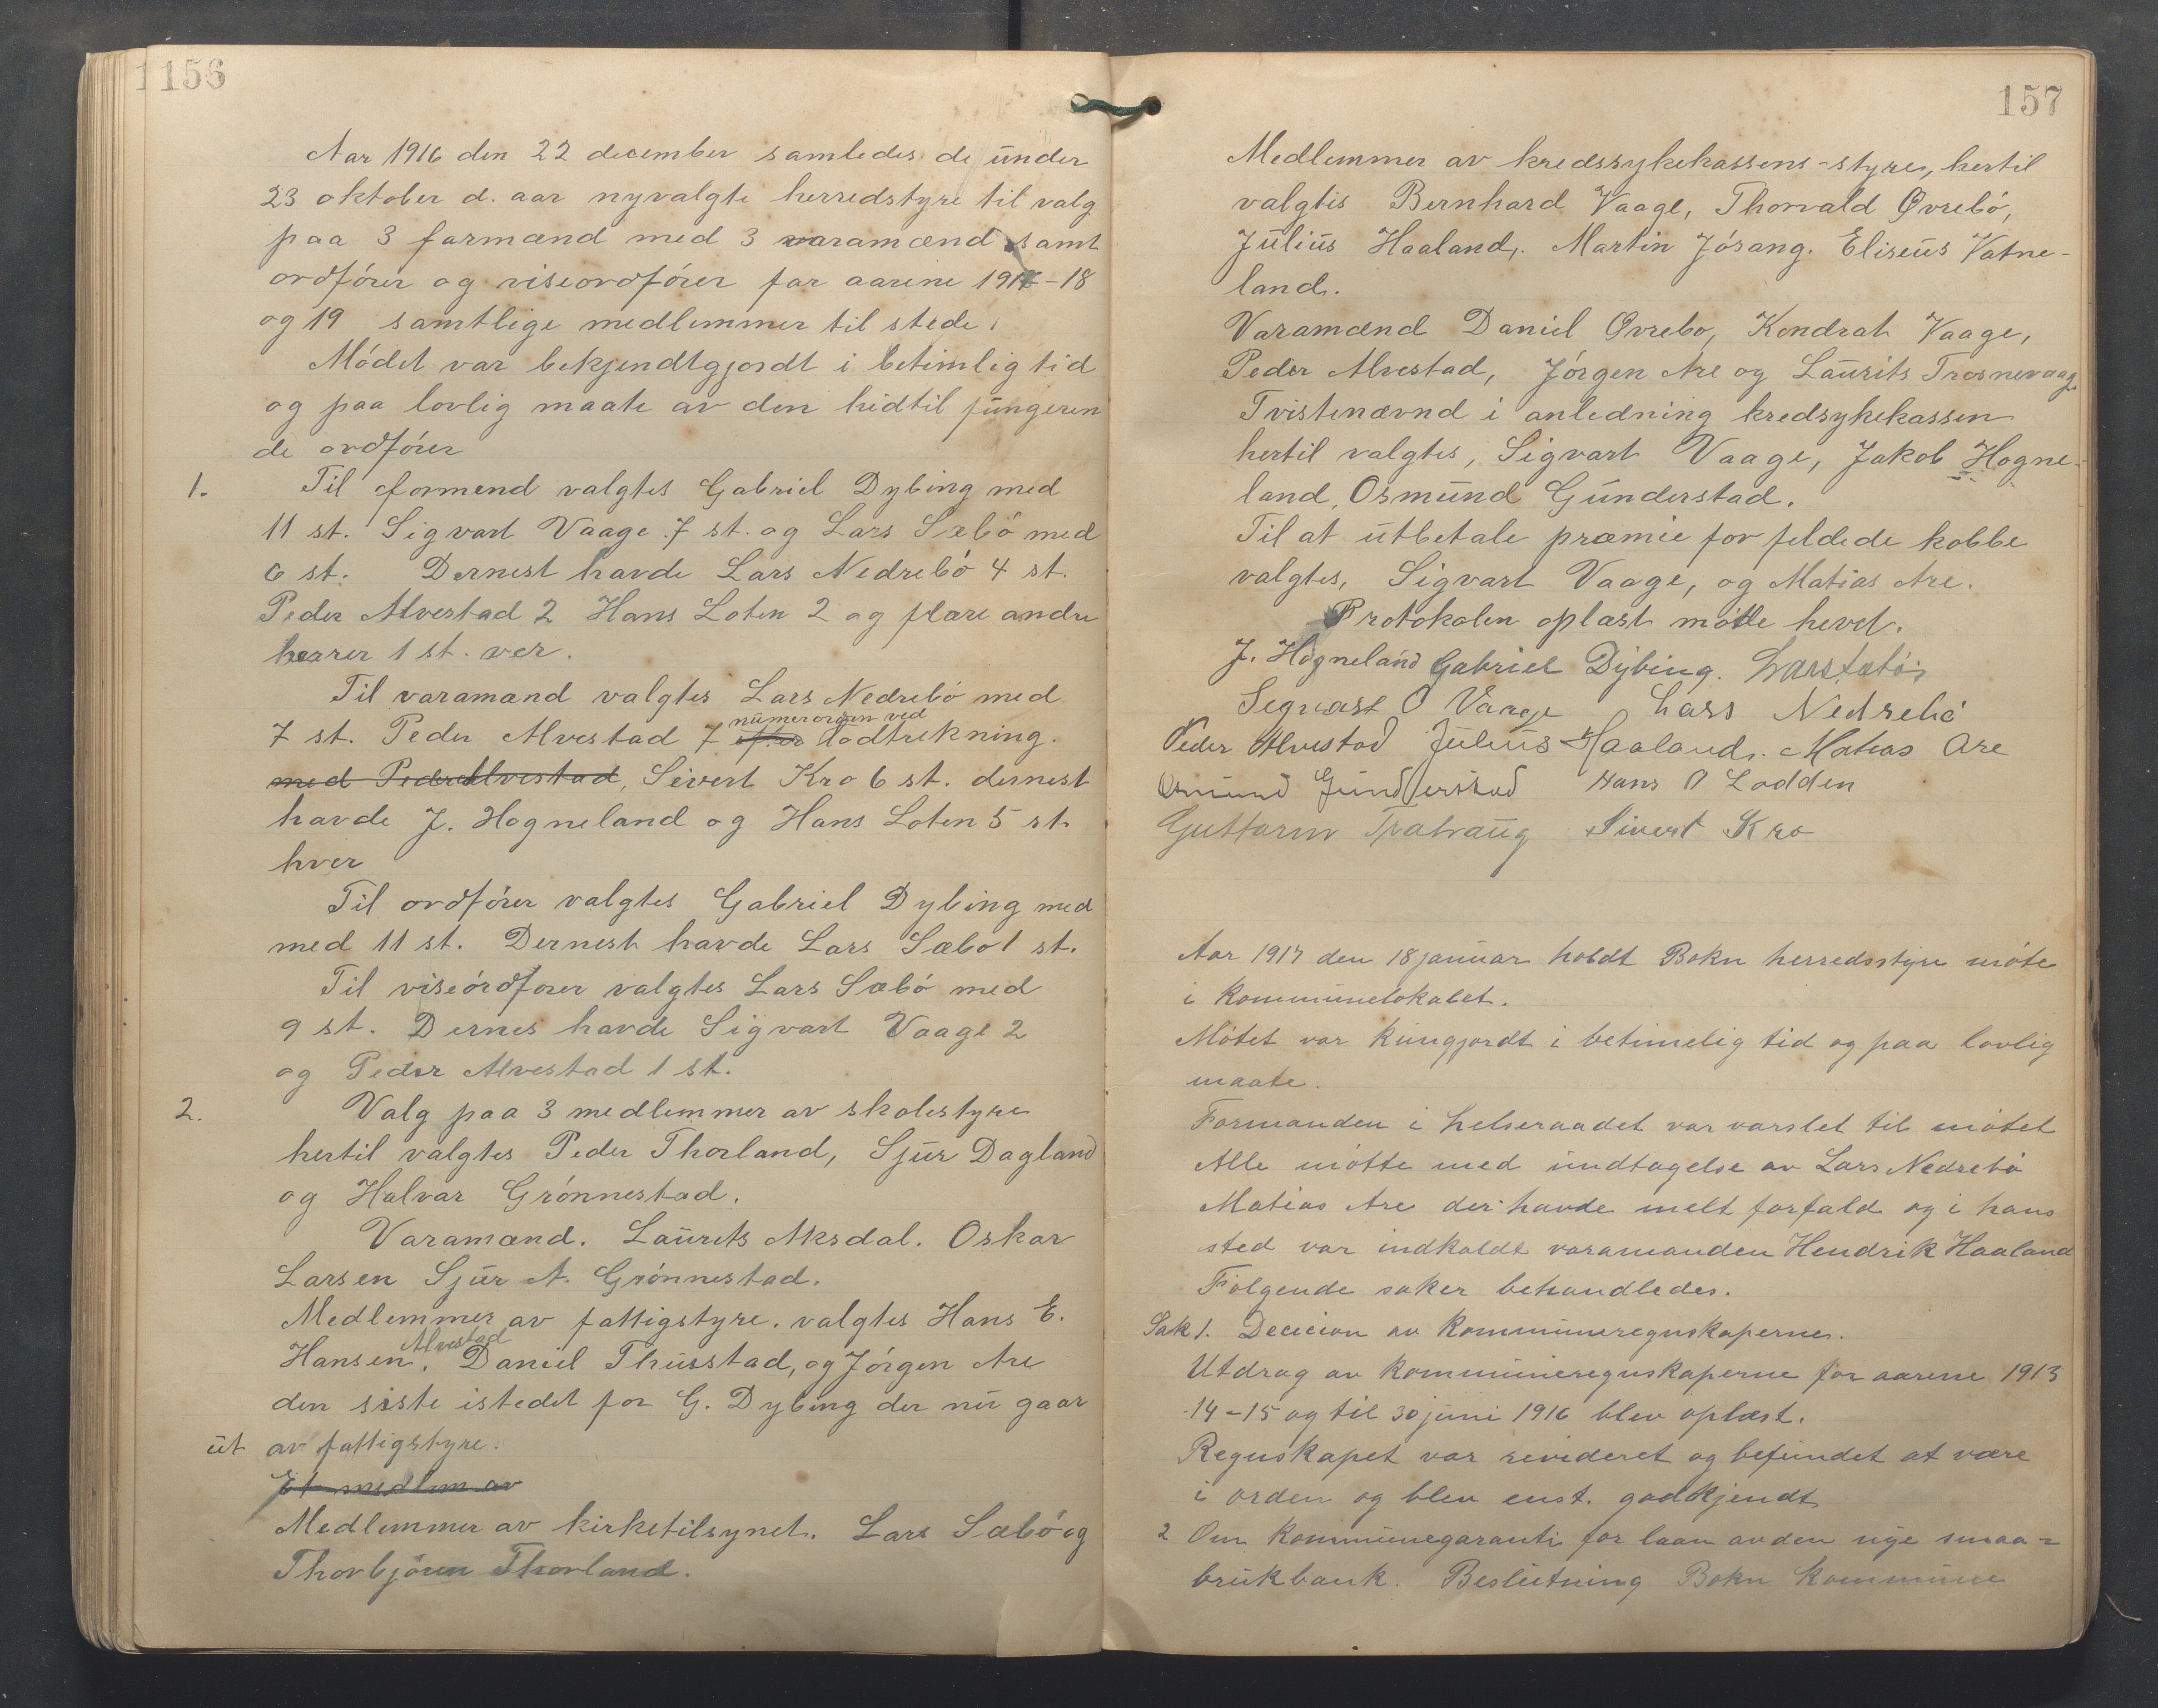 156
Aar 1916 den 22 december samledes de under
23 oktober d. aar nyvalgte herredstyre til valg
paa 3 formænd med 3 varamænd samt
ordfórer og viseordfórer for aarene 1917-18
og 19 samtlige medlemmer til stede.
Módet var bekjendtgjordt i betimlig tid
og paa lovlig maate av den hidtil fungeren
de ordfórer
1. Til formend valgtes Gabriel Dybing med
11 st. Sigvart Vaage 7 st. og Lars Sæbó med
6 st. Dernest havde Lars Nedrebó 4 st.
Peder Alvestad 2 Hans Loten 2 og flære andre
herrer 1 st. ver.
Til varamænd valgtes Lars Nedrebó med
7 st. Peder Alvestad 7 efter numerorden ved lodtrekning.
med Peder Alvestad, Sivert Kro 6 st. dernest
havde J. Hogneland og Hans Loten 5 st
hver
Til ordfórer valgtes Gabriel Dybing med
med 11 st. Dernest havde Lars Sæbo 1 st.
Til viseórdforer valgtes Lars Sæbó med
9 st. Dernes havde Sigvart Vaage 2
og Peder Alvestad 1 st.
2. Valg paa 3 medlemmer av skolestyre
hertil valgtes Peder Thorland, Sjur Dagland
og Halvar Grónnestad.
Varamænd. Laurits Aksdal. Oskar
Larsen Sjur A. Grónnestad.
Medlemmer av fattigstyre. valgtes Hans E.
Hansen Alvestad, Daniel Thusstad, og Jórgen Are
den siste istedet for G. Dybing der nu gaar
ut av fattigstyre.
Et medlem av
Medlemmer av kirketilsynet. Lars Sæbó og
Thorbjórn Thorland.
157
Medlemmer av kredssykekassens-styre, hertil
valgtis Bernhard Vaage, Thorvald Øvrebó,
Julius Haaland, Martin Jósang. Eliseus Vatne-
land.
Varamænd Daniel Øvrebo, Kondrat Vaage,
Peder Alvestad, Jórgen Are og Laurits Trosnevaag
Tvistenævnd i anledning kredsykekassen
hertil valgtes, Sigvart Vaage, Jakob Hogne-
land, Osmund Gunderstad.
Til at utbetale præmie for feldede kobbe
valgtes, Sigvart Vaage, og Matias Are.
Protokolen oplæst móte hevet.
J. Hogneland Gabriel Dybing. Lars Sæbó
Segvart O Vaage Lars Nedrebó
Peder Alvestad Julius Haaland. Matias Are
Osmund Gunderstad Hans O Lodden
Guttorm Sivert Kro
Aar 1917 den 18 januar holdt Bokn herredsstyre móte
i Kommunelokalet.
Mótet var kungjordt i betimelig tid og paa lovlig
maate.
Formanden i helseraadet var varslet til mótet
Alle mótte med undtagelse av Lars Nedrebó
Matias Are der havde melt forfald og i hans
sted var indkaldt varamanden Hendrik Haaland
Fólgende saker behandledes.
Sak 1. Decicion av Kommuneregnskaperne.
Utdrag av Kommuneregnskaperne for aarene 1913
-14-15 og til 30 juni 1916 blev oplæst.
Regnskapet var revideret og befundet at være
i orden og blev enst. godkjendt
2 Om Kommunegaranti for laan av den nye smaa=
brukbank. Beslutning Bokn Kommune